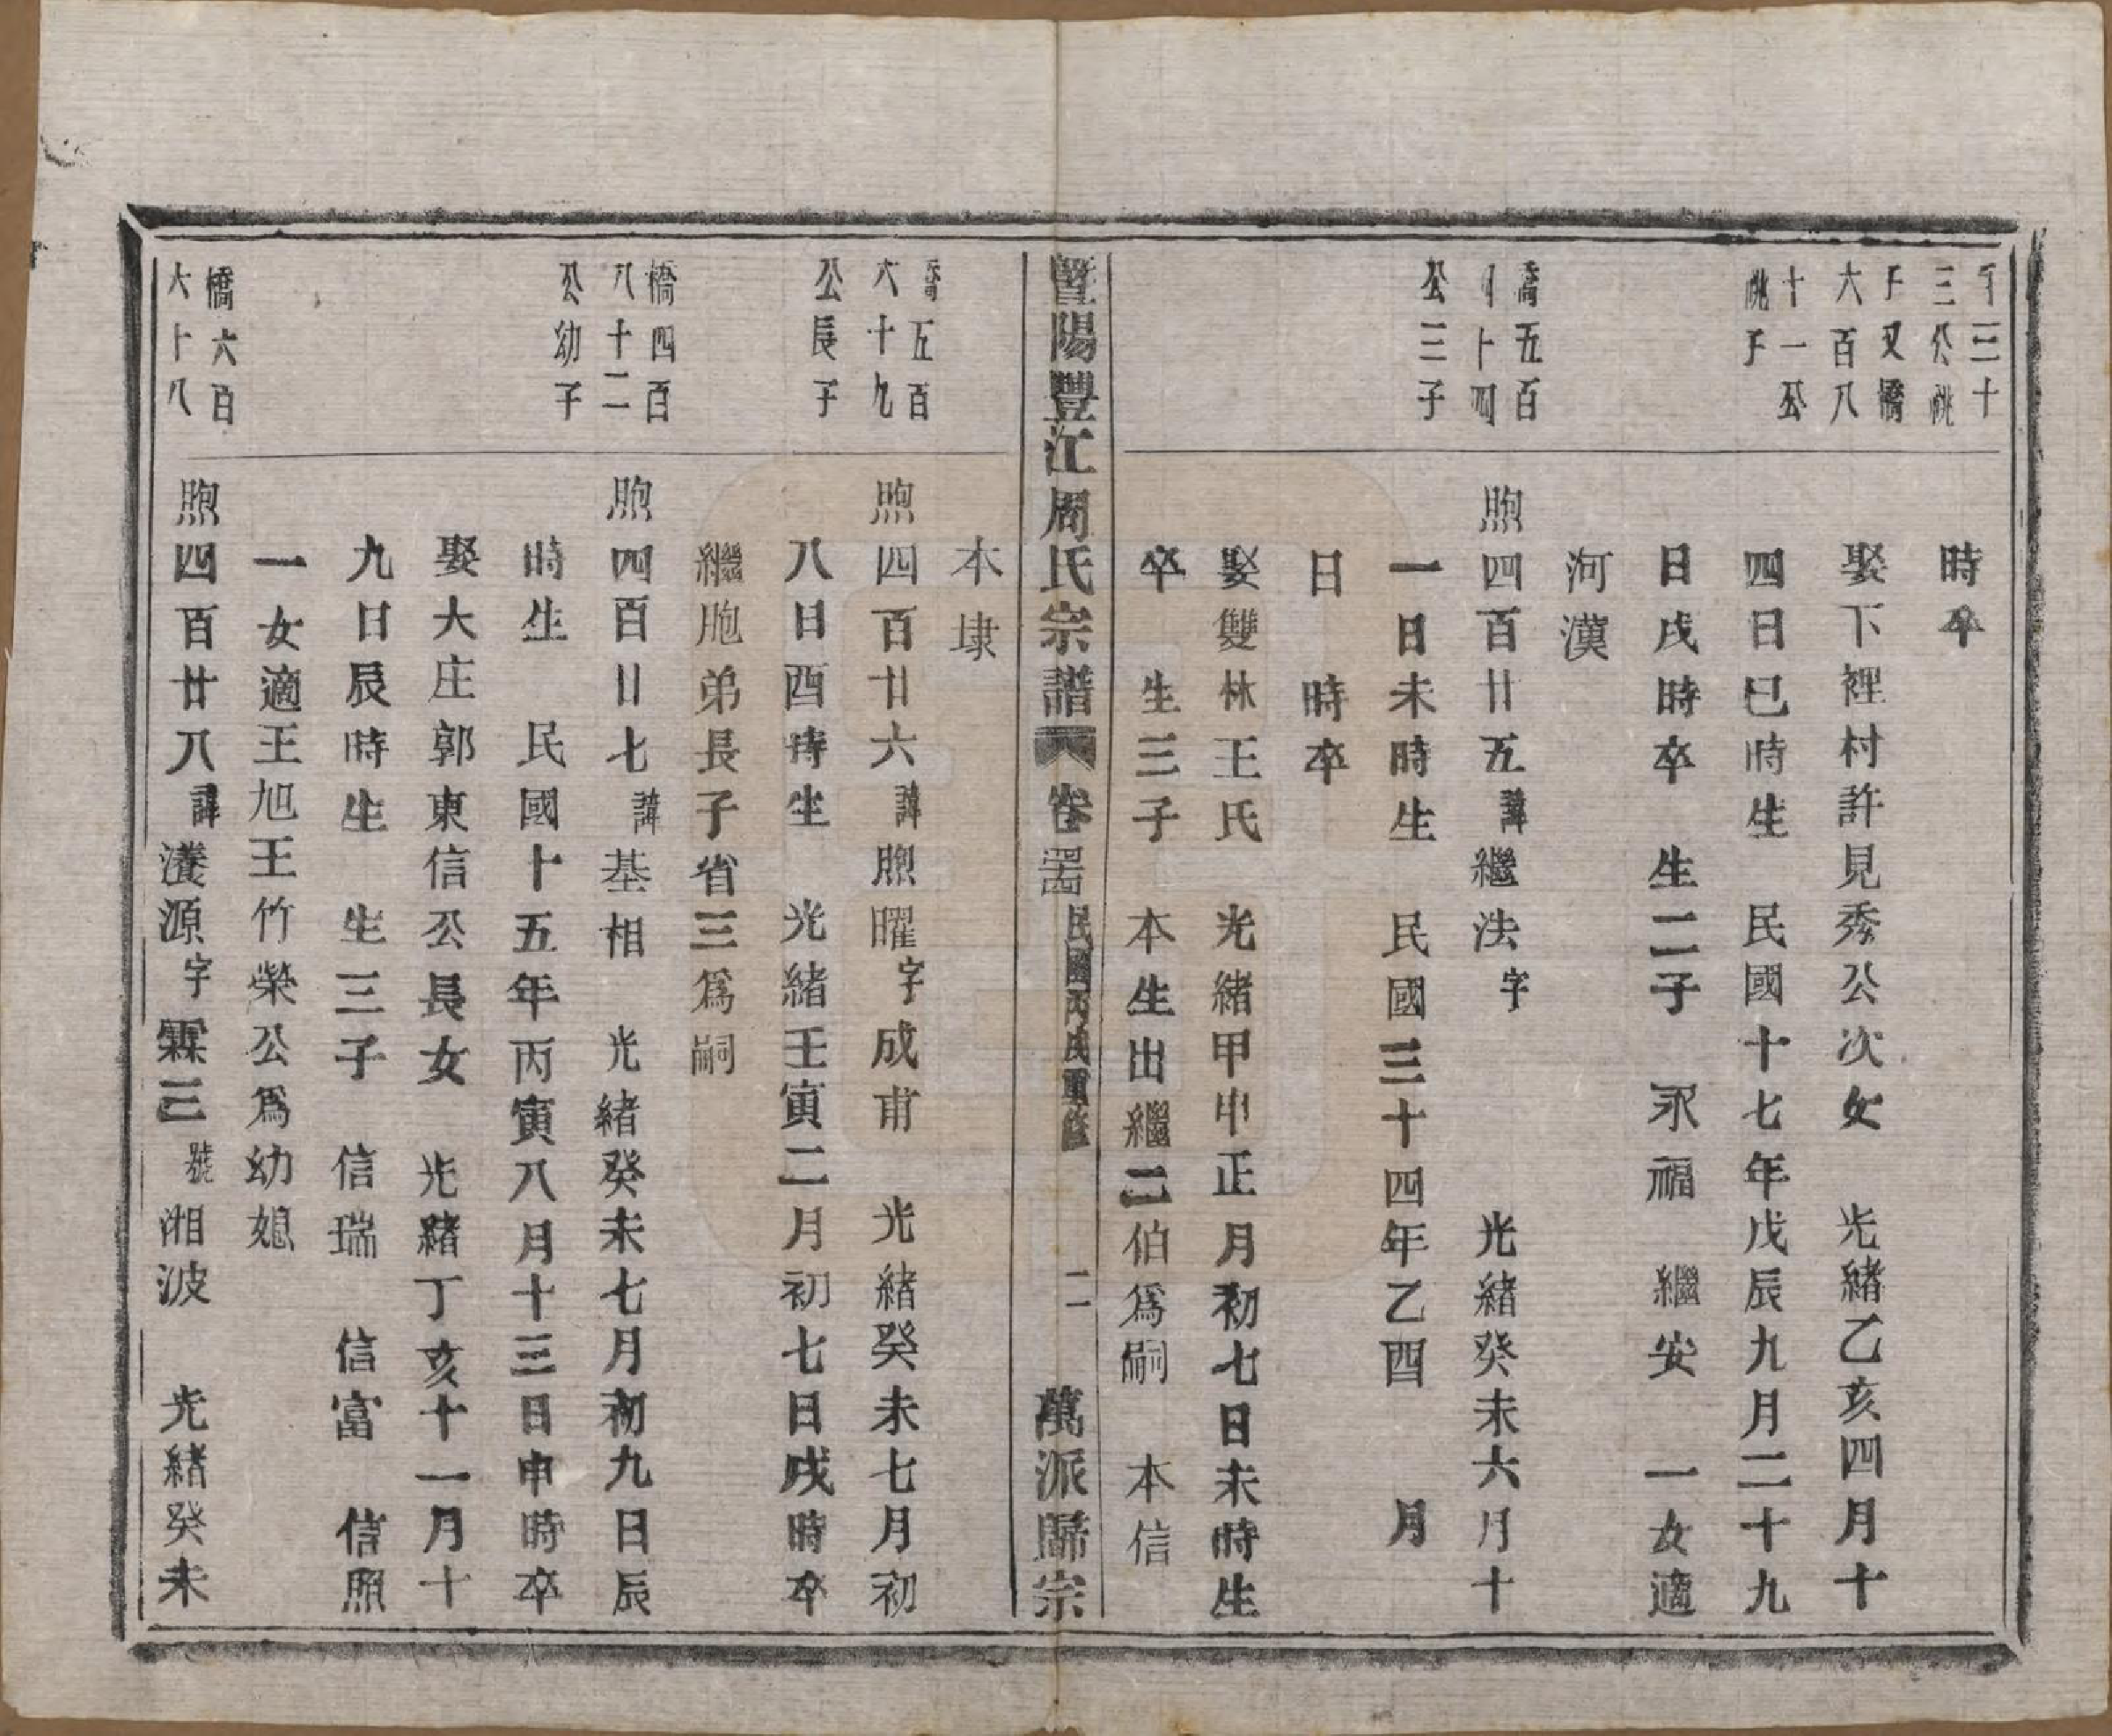 千三十
三公祧
子又橋
六百八
十一公
祧子
時卒
娶下裡村許見秀公次女　光緒乙亥四月十
四日巳時生　民國十七年戊辰九月二十九
日戌時卒　生二子　永福　繼安　一女適
河漢
橋五百
四十四
公三子
煦四百廿五諱繼法字　　　光緒癸未六月十
一日未時生　民國三十四年乙酉　月
日　時卒
娶雙林王氏　光緒甲申正月初七日未時生
卒　生三子　本生出繼二伯爲嗣　本信
暨陽豐江周氏宗譜　卷　民國丙戌重修　二　萬派歸宗
本埭
橋五百
六十九
公長子
煦四百廿六諱煦曜字成甫　光緒癸未七月初
八日酉時生　光緒壬寅二月初七日戌時卒
繼胞弟長子省三爲嗣
橋四百
八十二
公幼子
煦四百廿七諱基相　光緒癸未七月初九日辰
時生　民國十五年丙寅八月十三日申時卒
娶大庄郭東信公長女　光緒丁亥十一月十
九日辰時生　生三子　信瑞　信富　信照
一女適王旭王竹榮公爲幼媳
橋六百
六十八
煦四百廿八諱濚源字霖三號湘波　光緒癸未